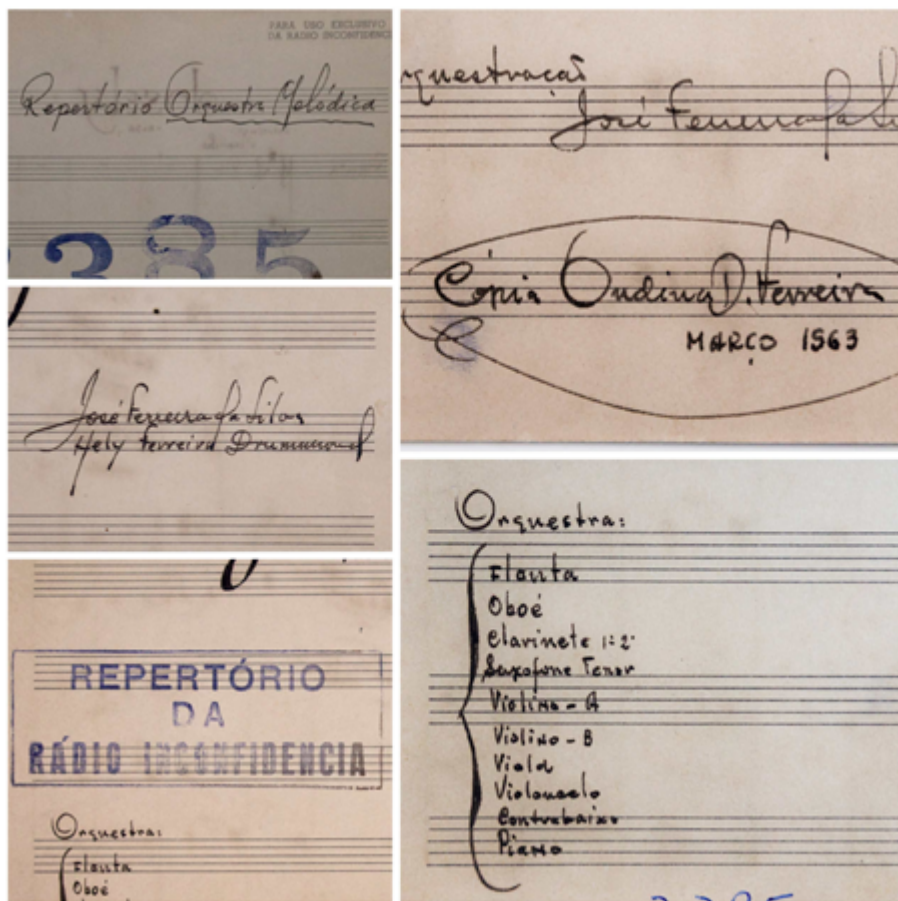 PARA USO EXCLUSIVO
DA RADIO INCONFIDENC
Repertório Orquestra Melódica
385
José Ferreira da Silva
Hely Ferreira Drummond
REPERTÓRIO
DA
RÁDIO INCONFIDENCIA
Orquestra:
Flauta
Oboé
rquestração
José Ferreira da Si
Cópia Ondina D. Ferreira
MARÇO 1963
Orquestra:
Flauta
Oboé
Clarinete 1º 2º
Saxofone Tenor
Violino - A
Violino - B
Viola
Violoncelo
Contrabaixo
Piano